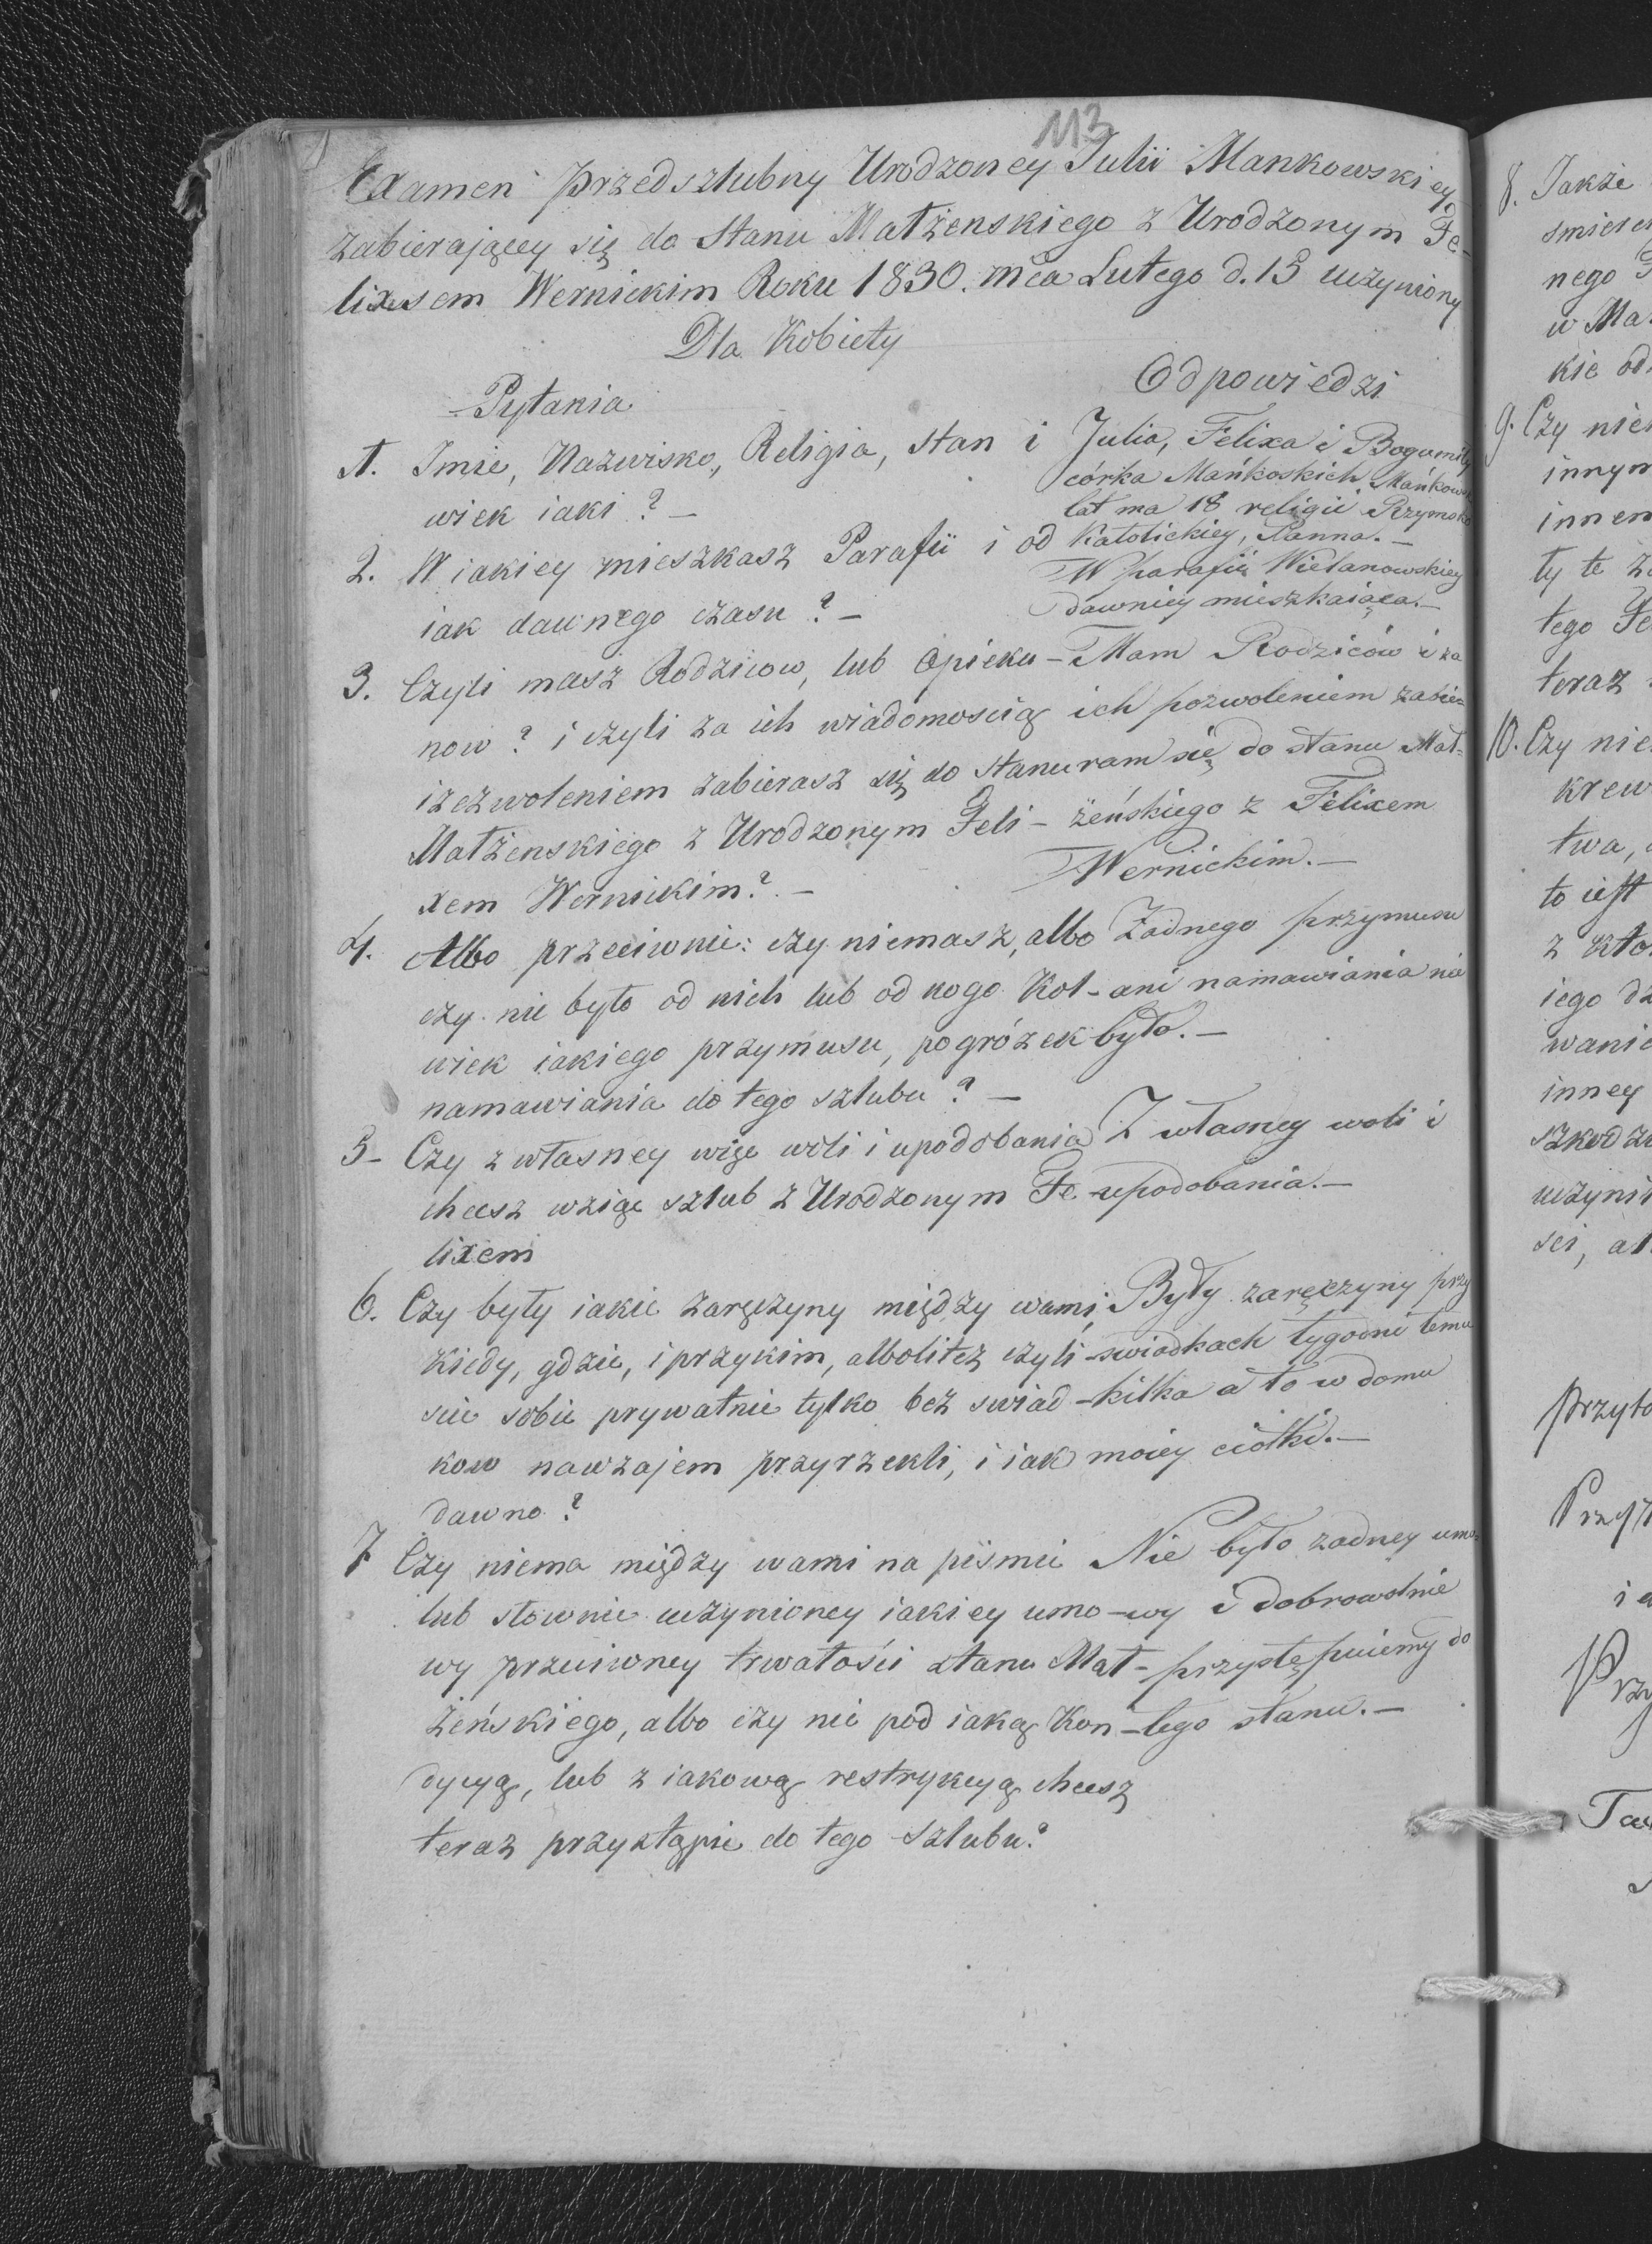 113
Examen przedszlubny Urodzoney Julii Mankowskiey
zabierającey się do Stanu Małżenskiego z Urodzonym Fe-
lixsem Wernickim Roku 1830. mca Lutego d. 13 uczyniony
Dla Kobiety
Pytania
Odpowiedzi
1. Imie, Nazwisko, Religia, stan i
wiek iaki? —
Julia, Felixa i Bogumiły
córka Mańkoskich Mańkows
lat ma 18 religii Rzymsko
Katolickiey, Panna. —
2. W iakiey mieszkasz Parafii i od
iak dawnego czasu? —
W parafii Wielanowskiey
dawniey mieszkaiąca. —
3. Czyli masz Rodzicow, lub Opieku-
now? i czyli za ich wiadomoscią
i zezwoleniem zabierasz się do stanu
Małżenskiego z Urodzonym Feli-
xem Wernickim? —
Mam Rodziców i za
ich pozwoleniem zabie-
ram się do stanu Mał-
żeńskiego z Felixem
Wernickim. —
4. Albo przeciwnie: czy niemasz, albo
czy nie było od nich lub od kogo kol-
wiek iakiego przymusu, pogrózek
namawiania do tego szlubu? —
Żadnego przymusu
ani namawiania nie
było. —
5- Czy z własney więc woli i upodobania
chcesz wziąc szlub z Urodzonym Fe-
lixem
Z własney woli i
upodobania. —
6. Czy były iakie zaręczyny między wami,
kiedy, gdzie, i przykim, albolitez czyli
scie sobie prywatnie tylko bez swiad-
kow nawzajem przyrzekli, i iak
dawno?
Były zaręczyny przy
swiadkach tygodni temu
kilka a to w domu
moiey ciotki. —
7 Czy niema między wami na pismie
lub słownie uczynioney iakiey umo-
wy przeciwney trwałości stanu Mał-
żeńskiego, albo czy nie pod iaką Kon-
dycyą, lub z iakową restrykcyą chcesz
teraz przystąpic do tego szlubu?
Nie było zadney umo-
wy i dobrowolnie
przystępuiemy do
tego stanu. —
8. Jakże
nego
w Ma
kie od
9. Czy nie
innym
innem
ty te
tego Fe
teraz
10. Czy nie
krew
twa,
to iest
z kto
iego
wanie
inney
szkodz
uczyni
sci, al